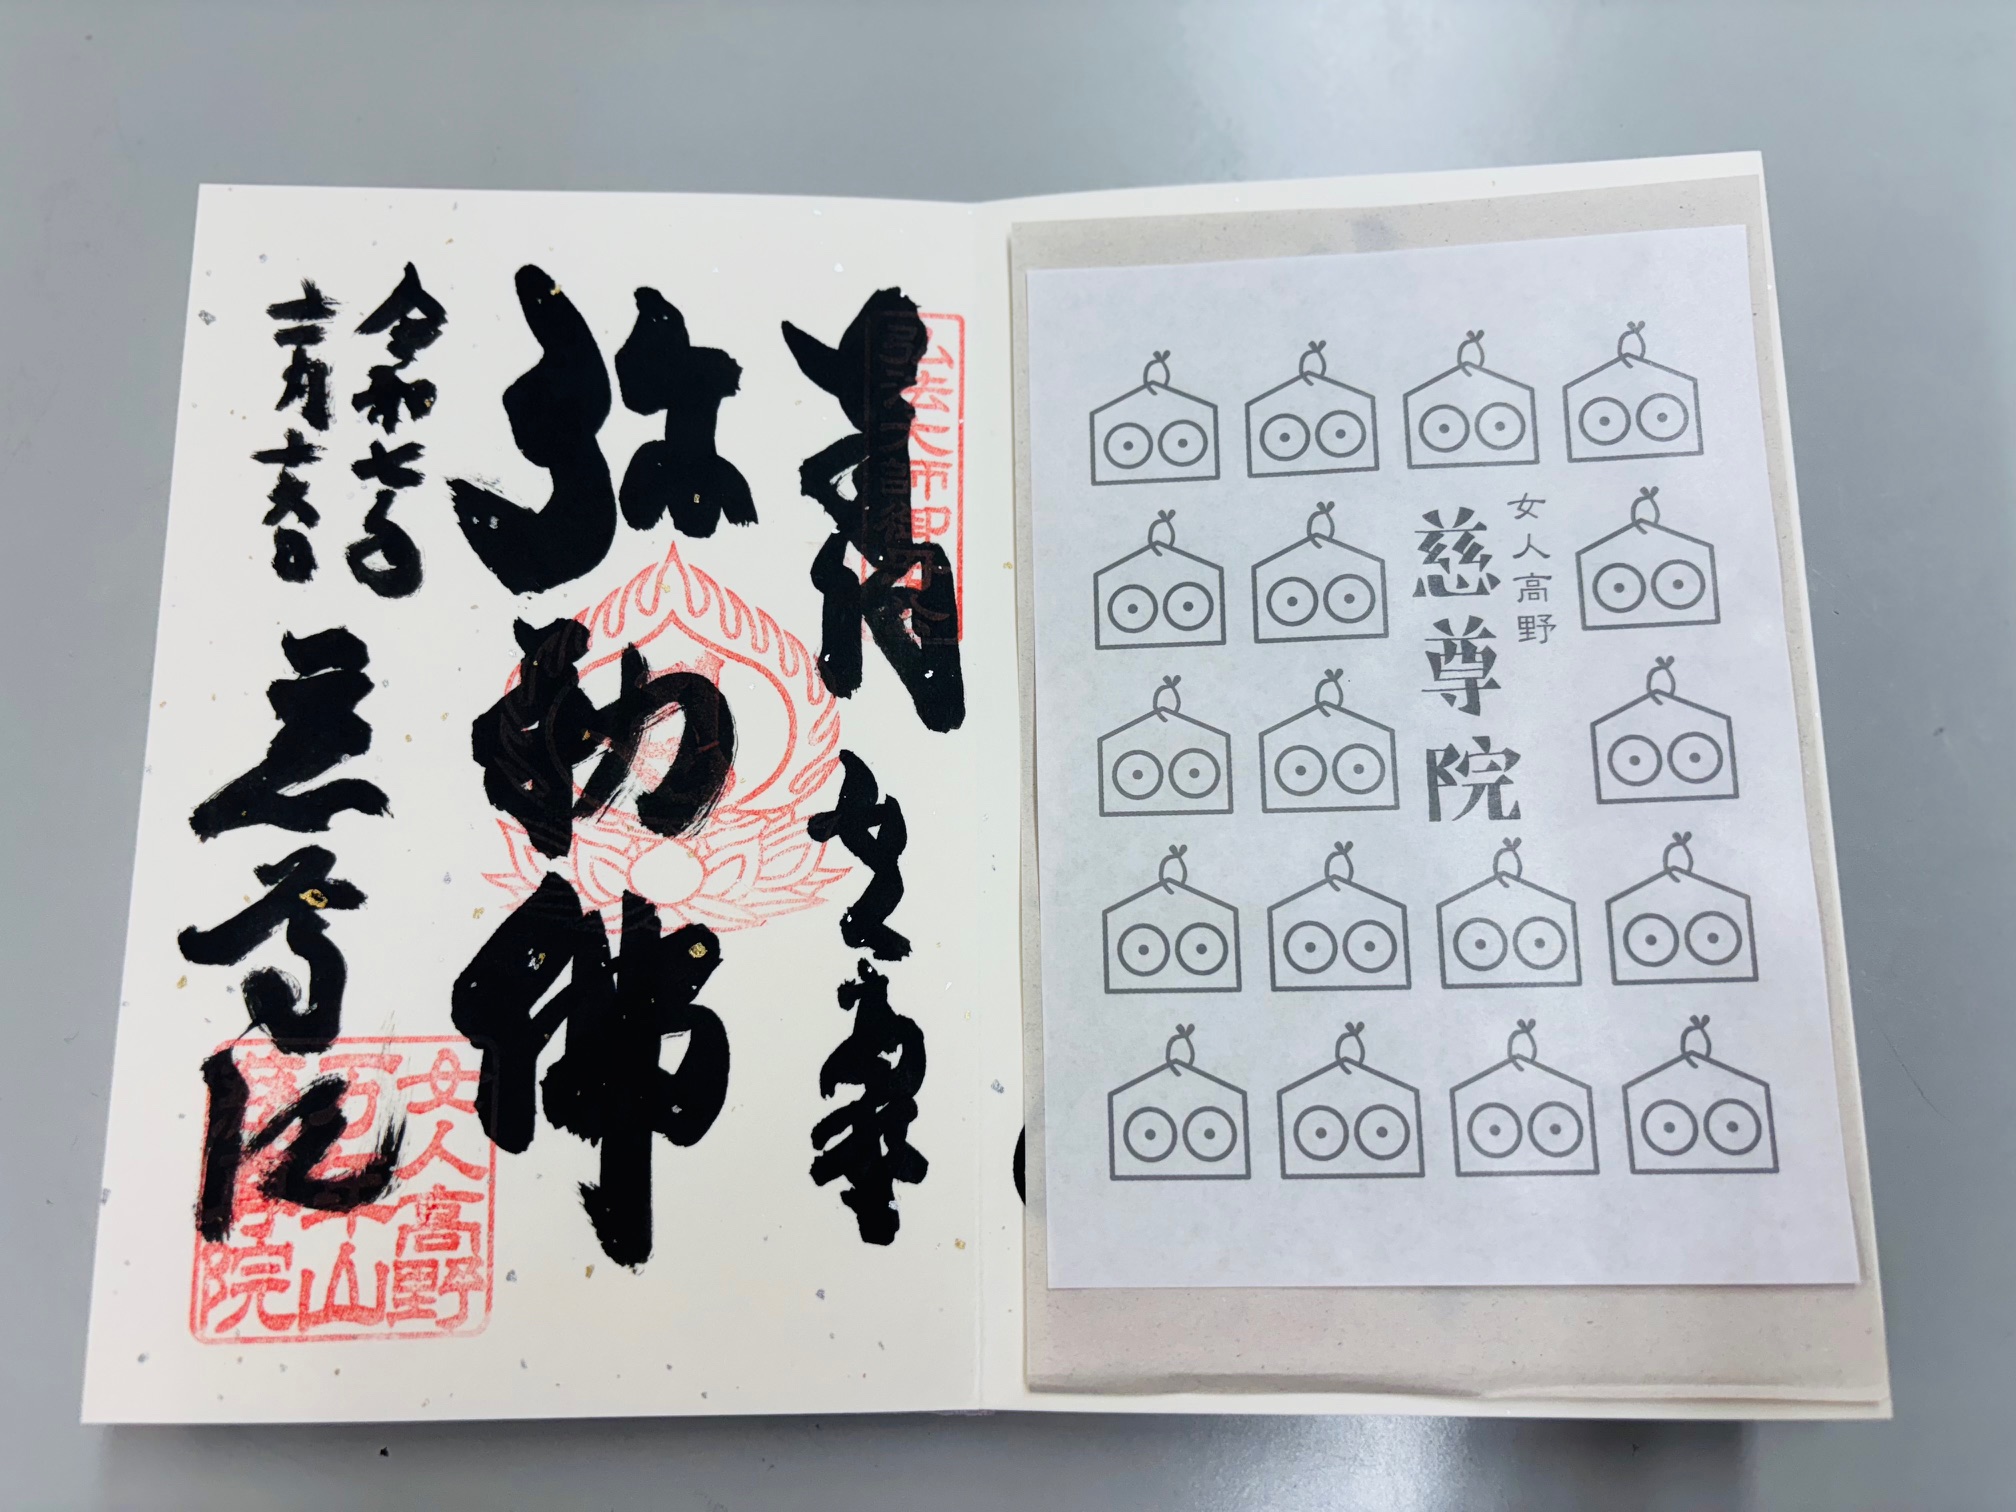 女人高野
慈尊院
弘法大師御母公
弥勒佛
令和七年
十二月十六日
慈尊院
女人高野
万年山
慈尊院